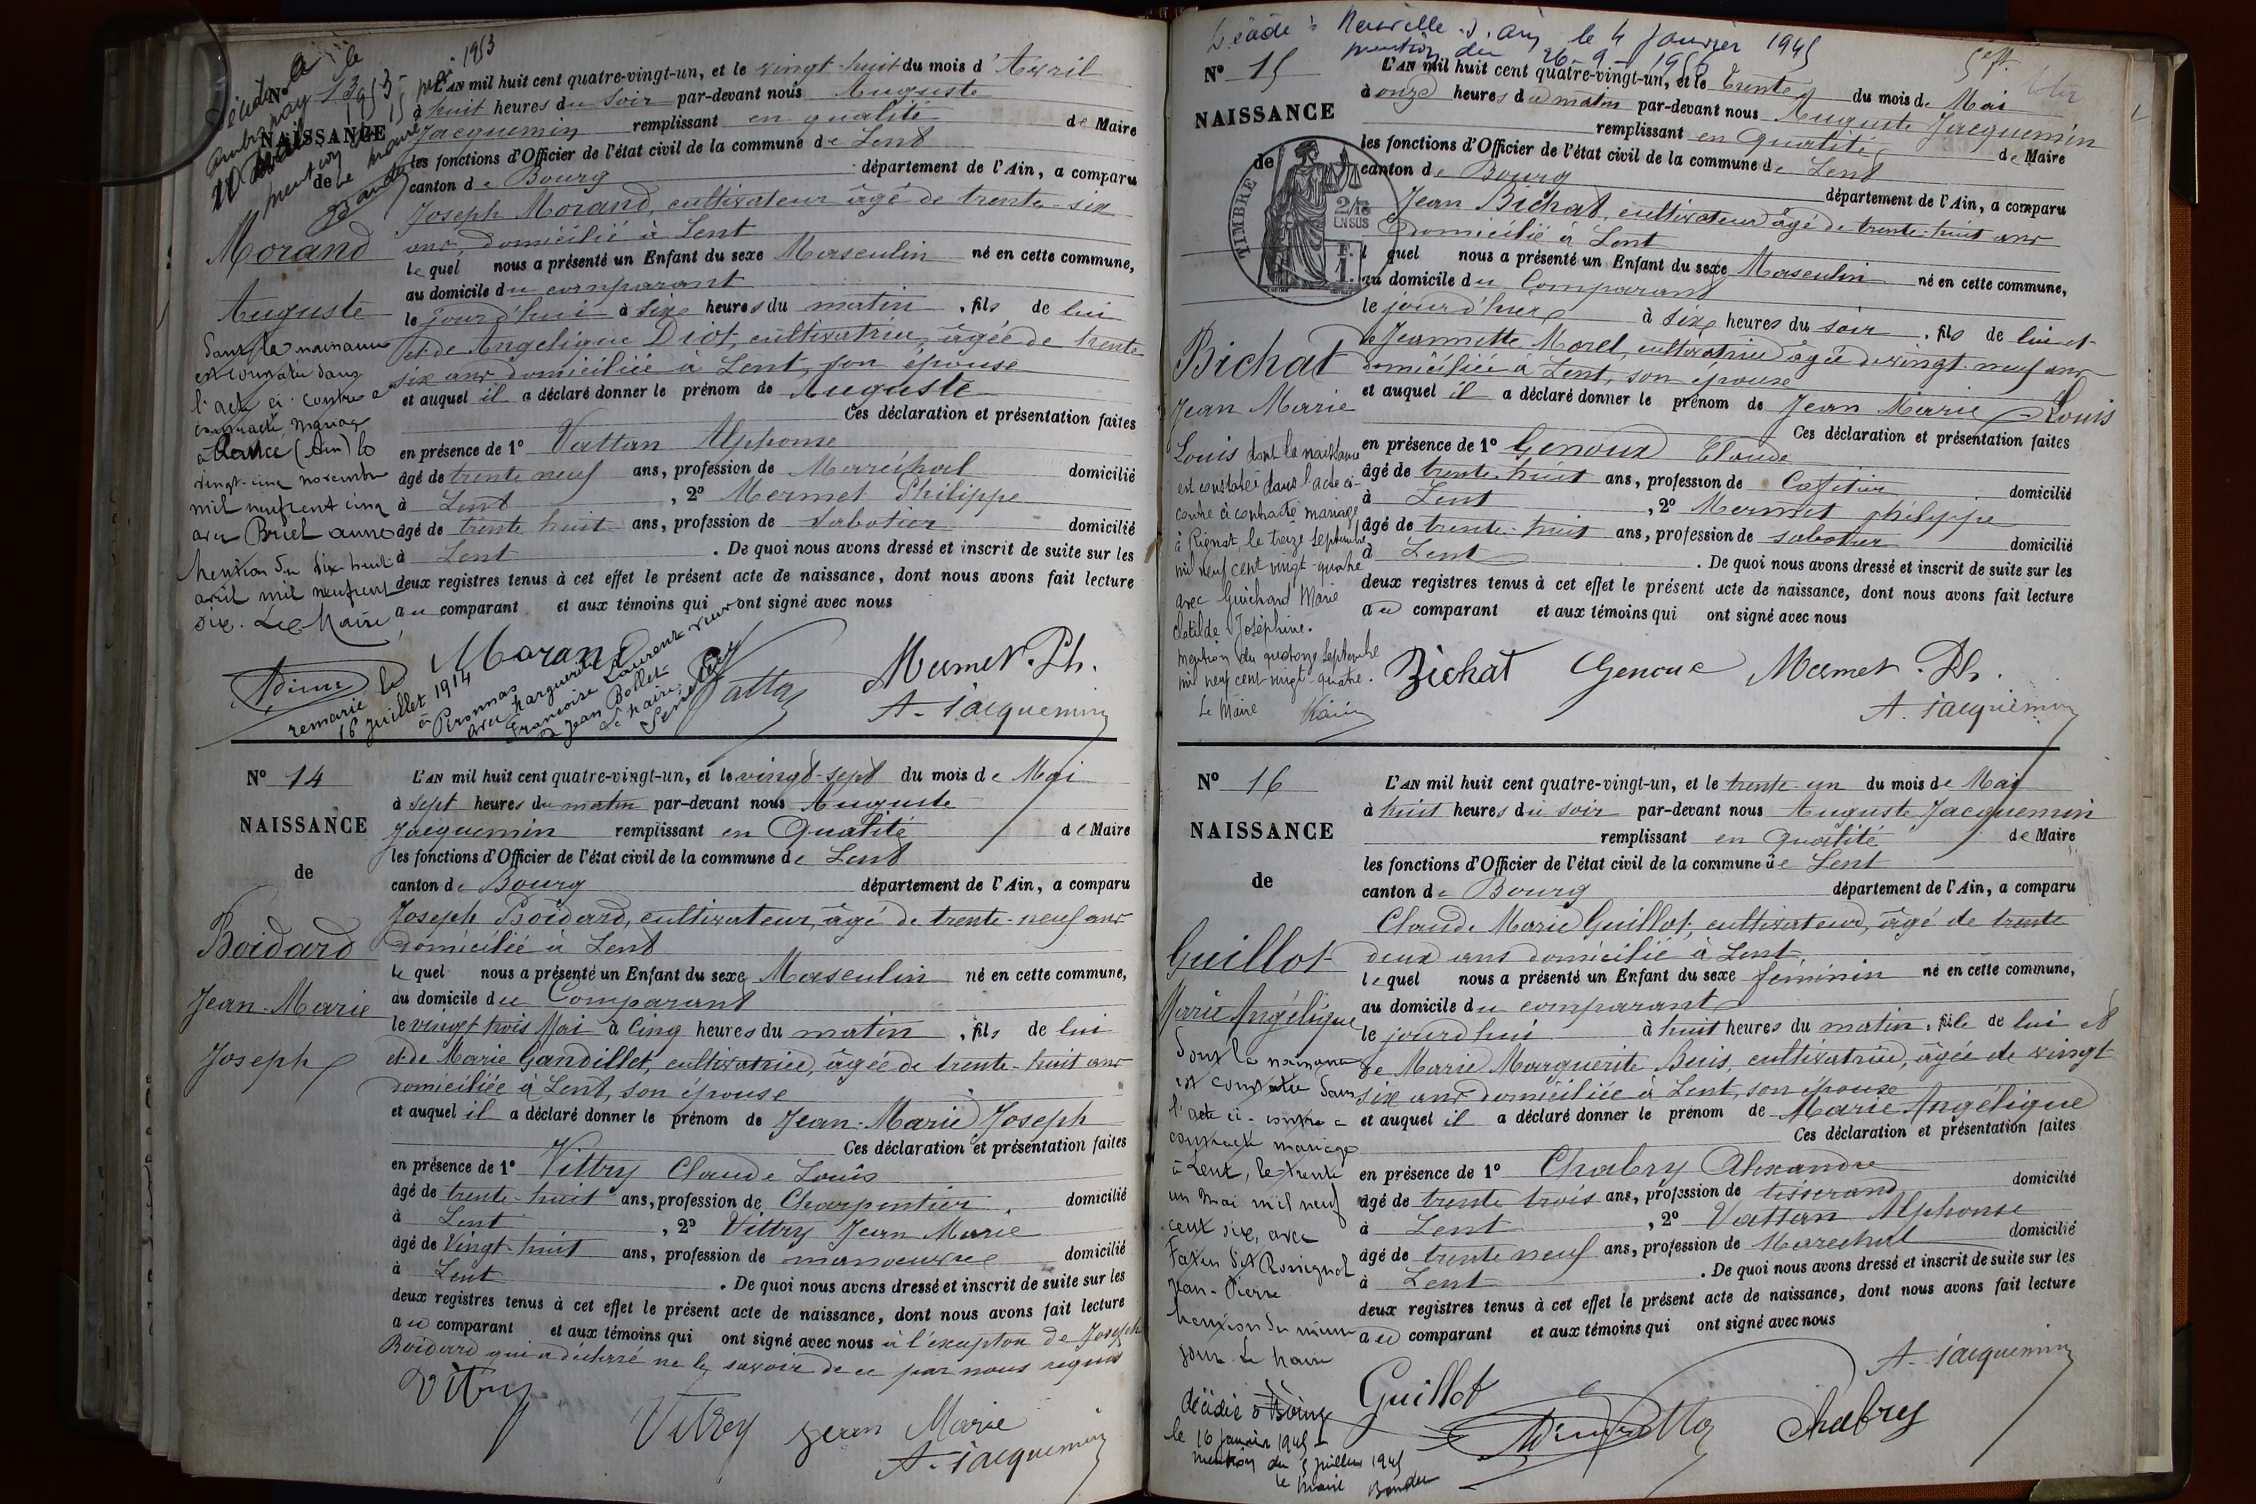 1953
L'AN mil huit cent quatre-vingt-un, et le vingt-huit du mois d'Avril
à huit heures du Soir par-devant nous Auguste
NAISSANCE
Jacquemin remplissant en qualité de Maire
les fonctions d'Officier de l'état civil de la commune de Lent
de
canton de Bourg département de l'Ain, a comparu
Joseph Morand, cultivateur âgé de trente-six
Morand
ans, domicilié à Lent
le quel nous a présenté un Enfant du sexe Masculin né en cette commune,
au domicile du comparant
Auguste
le jourd'hui à Six heures du matin, fils de lui
et de Angelique Diot, cultivatrice, âgée de trente
six ans domiciliée à Lent, son épouse
et auquel il a déclaré donner le prénom de Auguste
Ces déclaration et présentation faites
en présence de 1º Vattan Alphonse
âgé de trente neuf ans, profession de Maréchal domicilié
à Lent, 2º Mermet Philippe
âgé de trente huit ans, profession de Sabotier domicilié
à Lent. De quoi nous avons dressé et inscrit de suite sur les
deux registres tenus à cet effet le présent acte de naissance, dont nous avons fait lecture
au comparant et aux témoins qui ont signé avec nous
Dont la naissance
est constatée dans
l'acte ci-contre a
contracté mariage
à (Ain) le
vingt-cinq novembre
mil neuf cent cinq
avec Briel anne
Mention du dix-huit
avril mil neuf cent
six. Le Maire
Morand
Vattan
Mermet. Ph.
A. Jacquemin
remarié le
16 juillet 1914
à Péronnas
avec Marguerite Laurent veuve
Françoise
Jean Bollet
Le Maire
Nº 14
NAISSANCE
de
Boidard
Jean-Marie
Joseph
L'AN mil huit cent quatre-vingt-un, et le vingt-sept du mois de Mai
à Sept heures du matin par-devant nous Auguste
Jacquemin remplissant en Qualité de Maire
les fonctions d'Officier de l'état civil de la commune de Lent
canton de Bourg département de l'Ain, a comparu
Joseph Boidard, cultivateur, âgé de trente-neuf ans
domicilié à Lent
le quel nous a présenté un Enfant du sexe Masculin né en cette commune,
au domicile du Comparant
le vingt trois Mai à Cinq heures du matin, fils de lui
et de Marie Gandillet, cultivatrice, âgée de trente-huit ans
domiciliée à Lent, son épouse
et auquel il a déclaré donner le prénom de Jean-Marie Joseph
Ces déclaration et présentation faites
en présence de 1º Vittry Claude Louis
âgé de trente-huit ans, profession de Charpentier domicilié
à Lent, 2º Vittry Jean Marie
âgé de Vingt-huit ans, profession de manoeuvre domicilié
à Lent. De quoi nous avons dressé et inscrit de suite sur les
deux registres tenus à cet effet le présent acte de naissance, dont nous avons fait lecture
au comparant et aux témoins qui ont signé avec nous à l'exception de Joseph
Boidard qui a déclaré ne le savoir de ce par nous requis
Vitry
Vitrey Jean Marie
A. Jacquemin
Décédé à Neuville s. Ain le 4 Janvier 1945
mention du 26-9-1956
Nº 15
NAISSANCE
de
TIMBRE
Bichat
Jean Marie
Louis dont la naissance
est constatée dans l'acte ci-
contre a contracté mariage
à Rignat, le treize Septembre
mil neuf cent vingt-quatre
avec Guichard Marie
Clotilde Joséphine.
Mention du quatorze Septembre
mil neuf cent vingt-quatre.
Le Maire
L'AN mil huit cent quatre-vingt-un, et le Trente du mois de Mai
à onze heures du matin par-devant nous Auguste Jacquemin
remplissant en Qualité de Maire
les fonctions d'Officier de l'état civil de la commune de Lent
canton de Bourg département de l'Ain, a comparu
Jean Bichat, cultivateur âgé de trente-huit ans
domicilié à Lent
le quel nous a présenté un Enfant du sexe Masculin né en cette commune,
au domicile du Comparant
le jourd'hier à Six heures du soir, fils de lui et
de Jeannette Morel, cultivatrice âgée de vingt-neuf ans
domiciliée à Lent, son épouse
et auquel il a déclaré donner le prénom de Jean Marie Louis
Ces déclaration et présentation faites
en présence de 1º Genoux Claude
âgé de trente-huit ans, profession de Cafetier domicilié
à Lent, 2º Mermet Philippe
âgé de trente-huit ans, profession de sabotier domicilié
à Lent. De quoi nous avons dressé et inscrit de suite sur les
deux registres tenus à cet effet le présent acte de naissance, dont nous avons fait lecture
au comparant et aux témoins qui ont signé avec nous
Bichat Genoux Mermet. Ph.
A. Jacquemin
Nº 16
NAISSANCE
de
Guillot
Marie Angélique
Dont la naissance
est constatée dans
l'acte ci-contre a
contracté mariage
à Lent, le trente
un mai mil neuf
cent six, avec
dit Rossignol
Jean-Pierre
Mention du même
jour Le Maire
décédée à Bourg
le 16 janvier 1945
mention du 5 juillet 1945
le Maire
L'AN mil huit cent quatre-vingt-un, et le trente-un du mois de Mai
à huit heures du soir par-devant nous Auguste Jacquemin
remplissant en Qualité de Maire
les fonctions d'Officier de l'état civil de la commune de Lent
canton de Bourg département de l'Ain, a comparu
Claude Marie Guillot, cultivateur, âgé de trente
deux ans domicilié à Lent
le quel nous a présenté un Enfant du sexe féminin né en cette commune,
au domicile du comparant
le jourd'hui à huit heures du matin, fille de lui et
de Marie Marguerite Buis, cultivatrice, âgée de vingt
six ans domiciliée à Lent, son épouse
et auquel il a déclaré donner le prénom de Marie Angélique
Ces déclaration et présentation faites
en présence de 1º Chabry Alexandre
âgé de trente trois ans, profession de tisserand domicilié
à Lent, 2º Vattan Alphonse
âgé de trente neuf ans, profession de Marechal domicilié
à Lent. De quoi nous avons dressé et inscrit de suite sur les
deux registres tenus à cet effet le présent acte de naissance, dont nous avons fait lecture
au comparant et aux témoins qui ont signé avec nous
A. Jacquemin
Guillot
Chabry